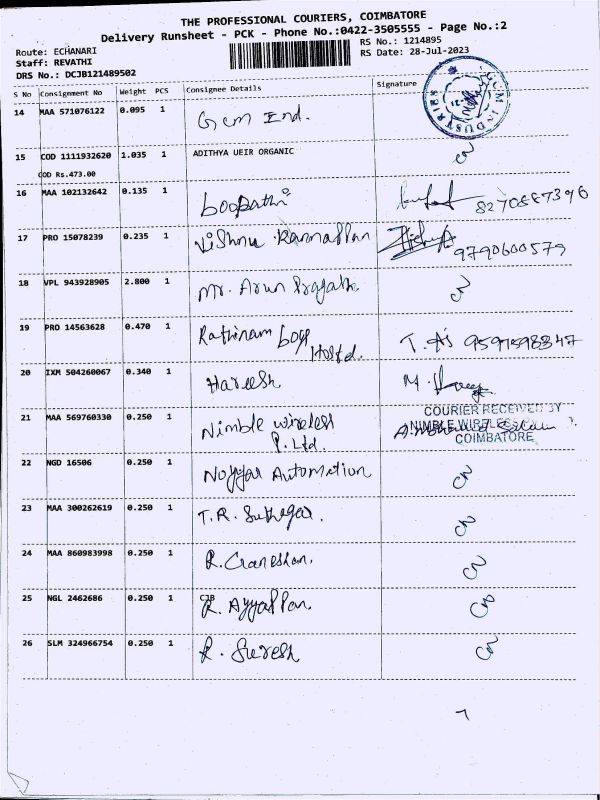 THE PROFESSIONAL COURIERS, COIMBATORE
Delivery Runsheet - PCK - Phone No.:0422-3505555 - Page No.:2
Route: ECHANARI
RS No.: 1214895
Staff: REVATHI
RS Date: 28-Jul-2023
DRS No.: DCJB121489502
S No Consignment No Weight PCS Consignee Details Signature
14 MAA 571076122 0.095 1 Gem Ind. GEM INDUSTRIES
15 COD 1111932620 1.035 1 ADITHYA UEIR ORGANIC
COD Rs.473.00
16 MAA 102132642 0.135 1 boopathi 8270887396
17 PRO 15078239 0.235 1 Vishnu Kannappan 9790600579
18 VPL 943928905 2.800 1 Mr. Arun
19 PRO 14563628 0.470 1 Rathinam boys
Hostel.
20 IXM 504260067 0.340 1 Hareesh M.
COURIER RECEIVED BY
21 MAA 569760330 0.250 1 Nimble wireless NIMBLE WIRELESS
P. Ltd. COIMBATORE
22 NGD 16506 0.250 1 Noyyar Automation
23 MAA 300262619 0.250 1 T.R.
24 MAA 860983998 0.250 1 R. Ganeshan.
25 NGL 2462686 0.250 1 CJB
R. Ayyappan.
26 SLM 324966754 0.250 1 R. Suresh